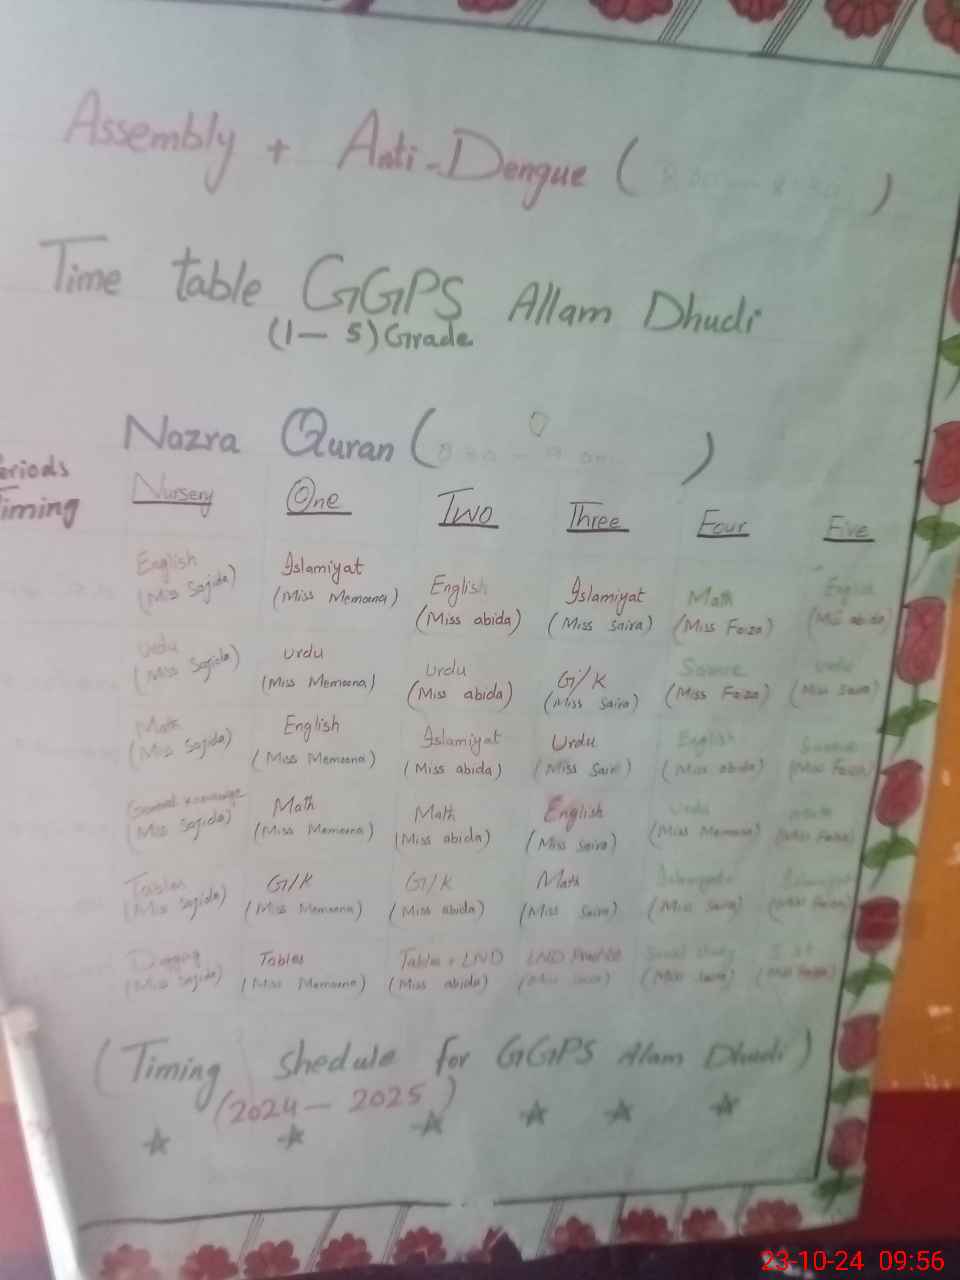 Assembly + Anti-Dengue ( )
Time table GGPS Allam Dhudi
(1 — 5) Grade
Nazra Quran ( )
Timing
Nursery One Two Three Four Five
English Islamiyat English Islamiyat Math English
(Miss Sajida) (Miss Memoona) (Miss abida) (Miss Saira) (Miss Faiza) (Miss abida)
Urdu Urdu Urdu G/K Urdu
(Miss Sajida) (Miss Memoona) (Miss abida) (Miss Saira) (Miss Faiza) (Miss Saira)
Math English Islamiyat Urdu English
(Miss Sajida) (Miss Memoona) (Miss abida) (Miss Saira) (Miss abida) (Miss Faiza)
Math Math English Urdu
(Miss Sajida) (Miss Memoona) (Miss abida) (Miss Saira) (Miss Memoona) (Miss Faiza)
Tables G/K G/K Math
(Miss Sajida) (Miss Memoona) (Miss abida) (Miss Saira) (Miss Saira) (Miss Faiza)
Tables Tables + LND LND
(Miss Sajida) (Miss Memoona) (Miss abida) (Miss Saira) (Miss Saira) (Miss Faiza)
(Timing shedule for GGPS Alam Dhudi)
(2024 — 2025)
23-10-24 09:56